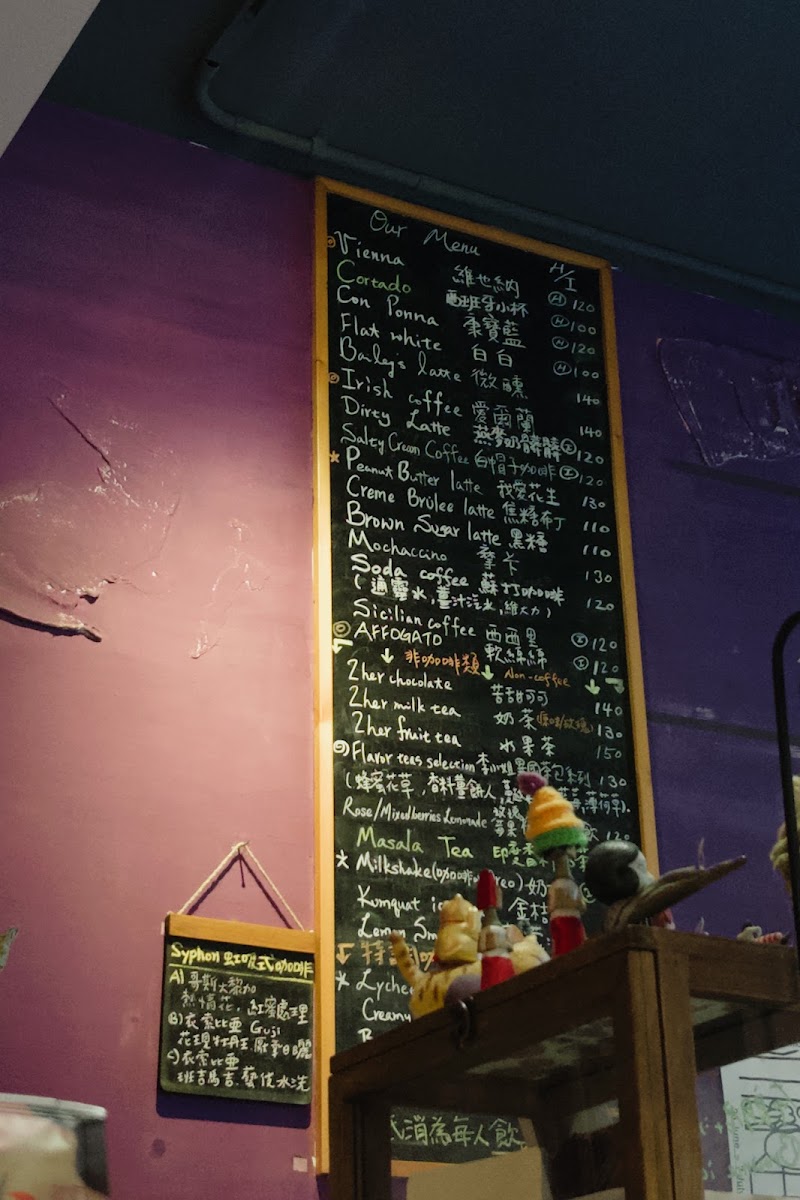 Our Menu
H/I
Vienna 維也納 Ⓗ 120
Cortado 西班牙小杯 Ⓗ 100
Con Ponna 康寶藍 Ⓗ 120
Flat white 白白 Ⓗ 100
Bailey's latte 微醺 140
Irish coffee 愛爾蘭 140
Dirty Latte 燕麥奶髒髒 Ⓘ 120
Salty Cream Coffee 白帽子咖啡 Ⓘ 120
★ Peanut Butter latte 我愛花生 130
Creme Brûlee latte 焦糖布丁 110
Brown Sugar latte 黑糖 110
Mochaccino 摩卡 130
Soda coffee 蘇打咖啡 120
(通寧水,薑汁汽水,維大力)
Sicilian coffee 西西里 Ⓘ 120
AFFOGATO 軟綿綿 Ⓘ 120
↓ 非咖啡類 ↓ Non-coffee ↓
2her chocolate 苦甜可可 140
2her milk tea 奶茶 130
2her fruit tea 水果茶 150
Flavor teas selection 李小姐異國茶包系列 130
(蜂蜜花草,香料薑餅人, 薄荷草).
Rose/Mixedberries Lemonade 玫瑰 120
Masala Tea 印
★ Milkshake(咖啡 reo) 奶
Kumquat 金桔
Lemon
特
★ Lychee
Creamy
消為每人飲
Syphon 虹吸式咖啡
A) 哥斯大黎加
熱情花, 紅蜜處理
B) 衣索比亞 Guji
花現牡丹, 厭氧日曬
C) 衣索比亞
班吉馬吉. 藝伎水洗